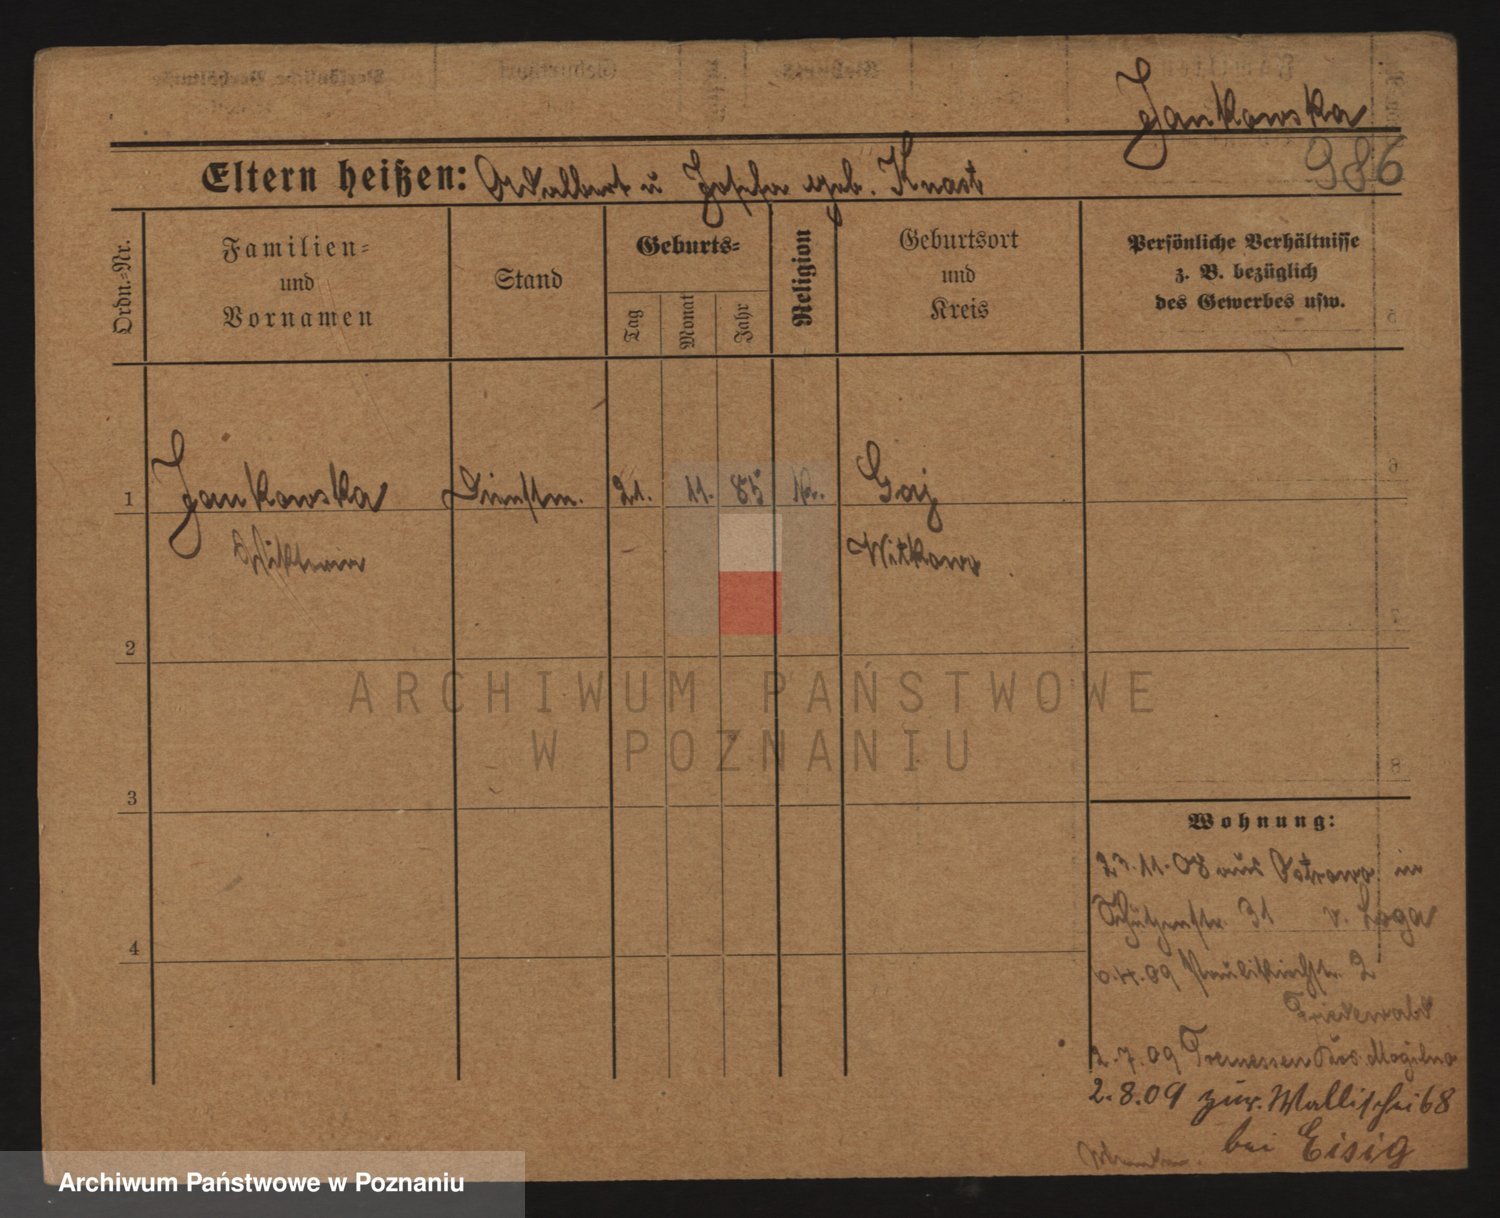 Jankowska
986
Eltern heißen: Adalbert u Josefa geb. Knast
Ordn.-Nr.
Familien-
und
Vornamen
Stand
Geburts-
Tag
Monat
Jahr
Religion
Geburtsort
und
Kreis
Persönliche Verhältnisse
z. B. bezüglich
des Gewerbes usw.
1 Jankowska Dienstm. 21. 11. 85 k. Gaj
Witkowo
2
ARCHIWUM PAŃSTWOWE
W POZNANIU
3
Wohnung:
23.11.08 aus Ostrowo in
Schützenstr. 31 v. Loga
4
.4.09 Paulikirchstr. 2
Friedewald
2.7.09 Tremessen Krs. Mogilno
2.8.09 zur. Wallischei 68
bei Eisig
Archiwum Państwowe w Poznaniu